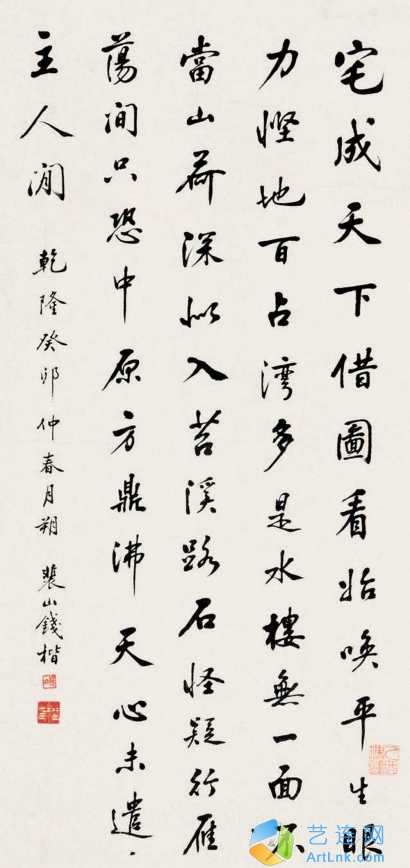 宅成天下借圖看始喚平生眼
力慳地百占灣多是水樓無一面不
當山荷深似入苕溪路石怪疑行雁
蕩間只恐中原方鼎沸天心未遣
主人閒 乾隆癸卯仲春月朔 裴山錢楷
艺连网
ArtLnk.com